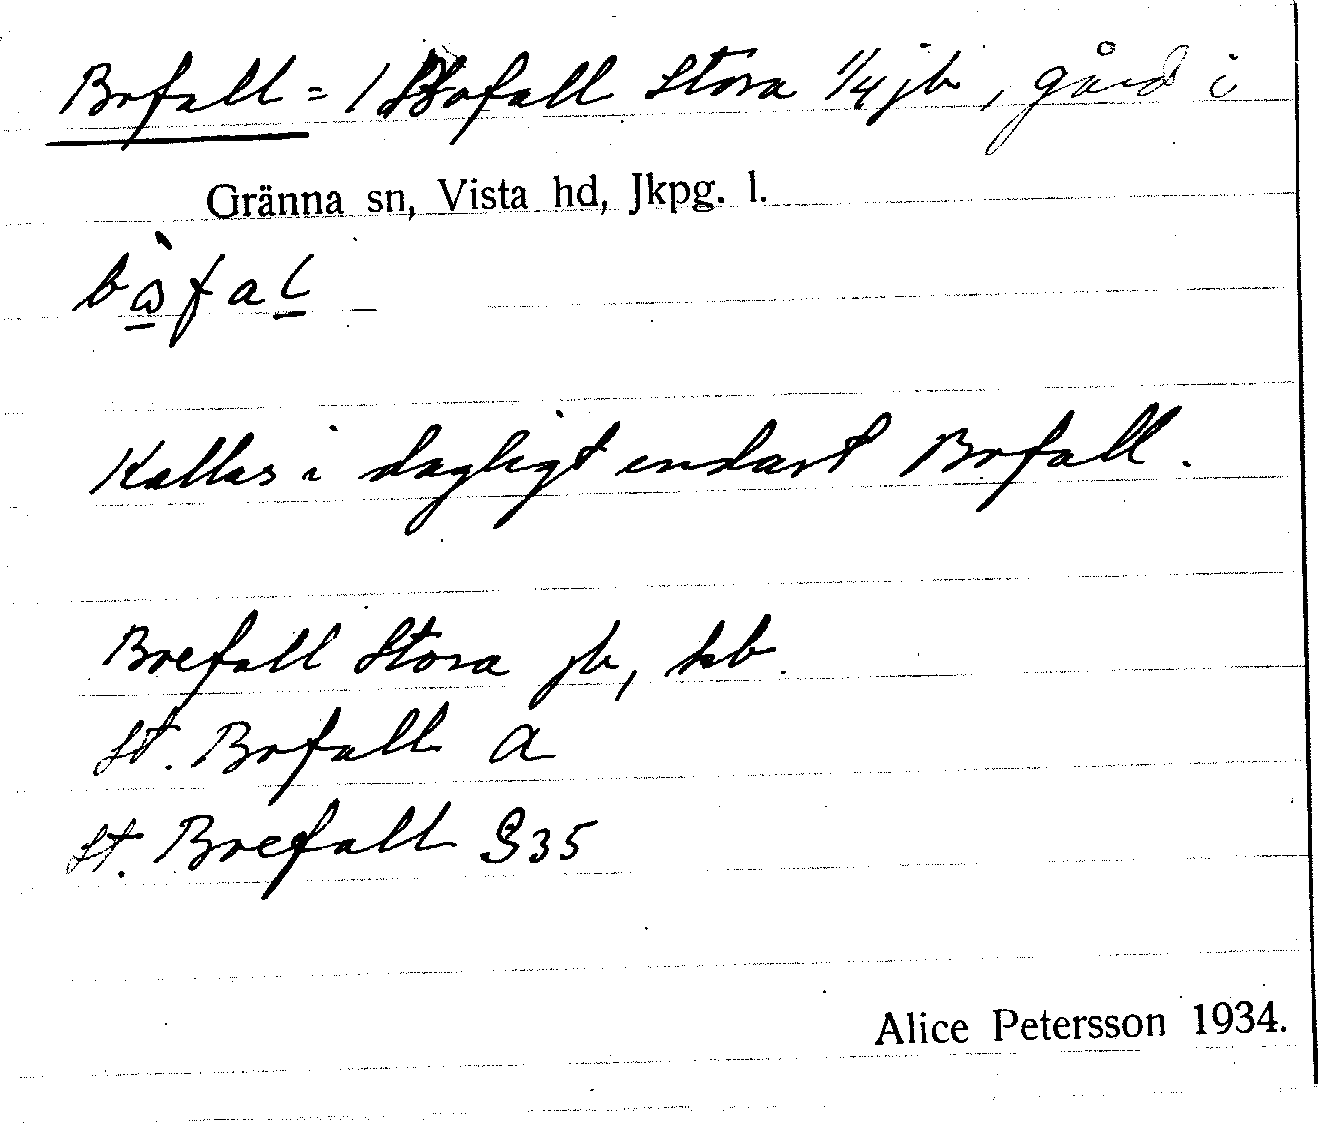 Bofall = / Bofall Stora 1/4 jb, gård i
Gränna sn, Vista hd, Jkpg. l.
Kallas i dagligt endast Bofall.
Boefall Stora jb, hb.
St. Bofall a
St. Boefall S35
Alice Petersson 1934.